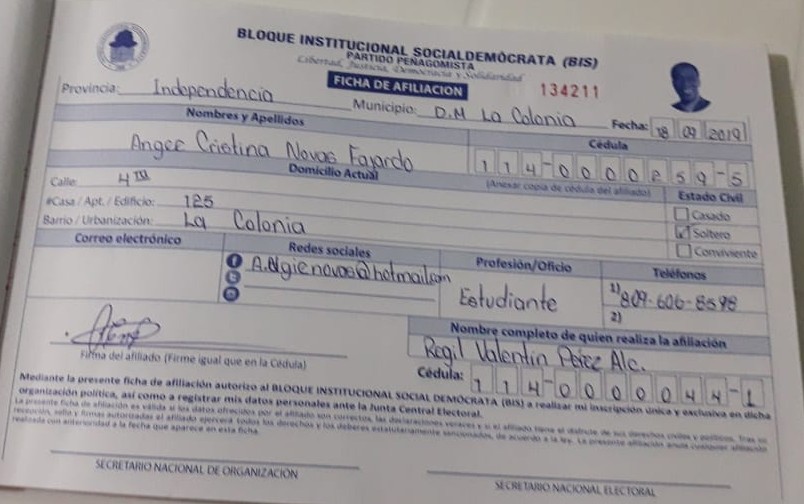 BLOQUE INSTITUCIONAL SOCIALDEMÓCRATA (BIS)
PARTIDO PEÑAGOMISTA
Libertad, Justicia, Democracia y Solidaridad
FICHA DE AFILIACION
134211
Provincia: Independencia
Municipio: D.M La Colonia
Fecha: 18 09 2019
Nombres y Apellidos
Cédula
Angee Cristina Novas Fajardo
114-0000259-5
Domicilio Actual
(Anexar copia de cédula del afiliado)
Estado Civil
Calle: 4ta
#Casa / Apt. / Edificio: 125
Barrio / Urbanización: La Colonia
Casado
Soltero
Conviviente
Correo electrónico
Redes sociales
Profesión/Oficio
Teléfonos
A.Algienovas@hotmail.com
Estudiante
1) 809-606-8598
2)
Nombre completo de quien realiza la afiliación
Regil Valentin Pérez Alc.
Firma del afiliado (Firme igual que en la Cédula)
Cédula: 114-0000044-1
Mediante la presente ficha de afiliación autorizo al BLOQUE INSTITUCIONAL SOCIAL DEMÓCRATA (BIS) a realizar mi inscripción única y exclusiva en dicha
organización política, así como a registrar mis datos personales ante la Junta Central Electoral.
La presente ficha de afiliación es válida si los datos ofrecidos por el afiliado son correctos, las declaraciones veraces y si el afiliado tiene el disfrute de sus derechos civiles y políticos. Tras su
recepción, sello y firmas autorizadas el afiliado ejercerá todos los derechos y los deberes estatutariamente sancionados, de acuerdo a la ley. La presente afiliación anula cualquier afiliación
realizada con anterioridad a la fecha que aparece en esta ficha.
SECRETARIO NACIONAL DE ORGANIZACIÓN
SECRETARIO NACIONAL ELECTORAL